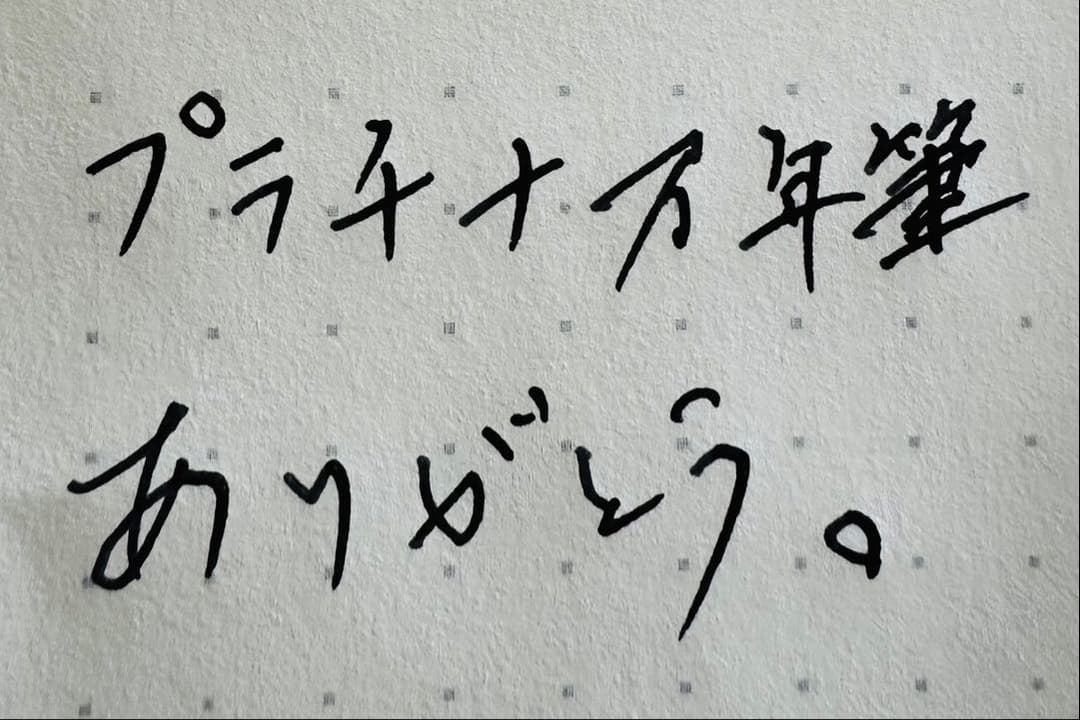 プラチナ万年筆
ありがとう。